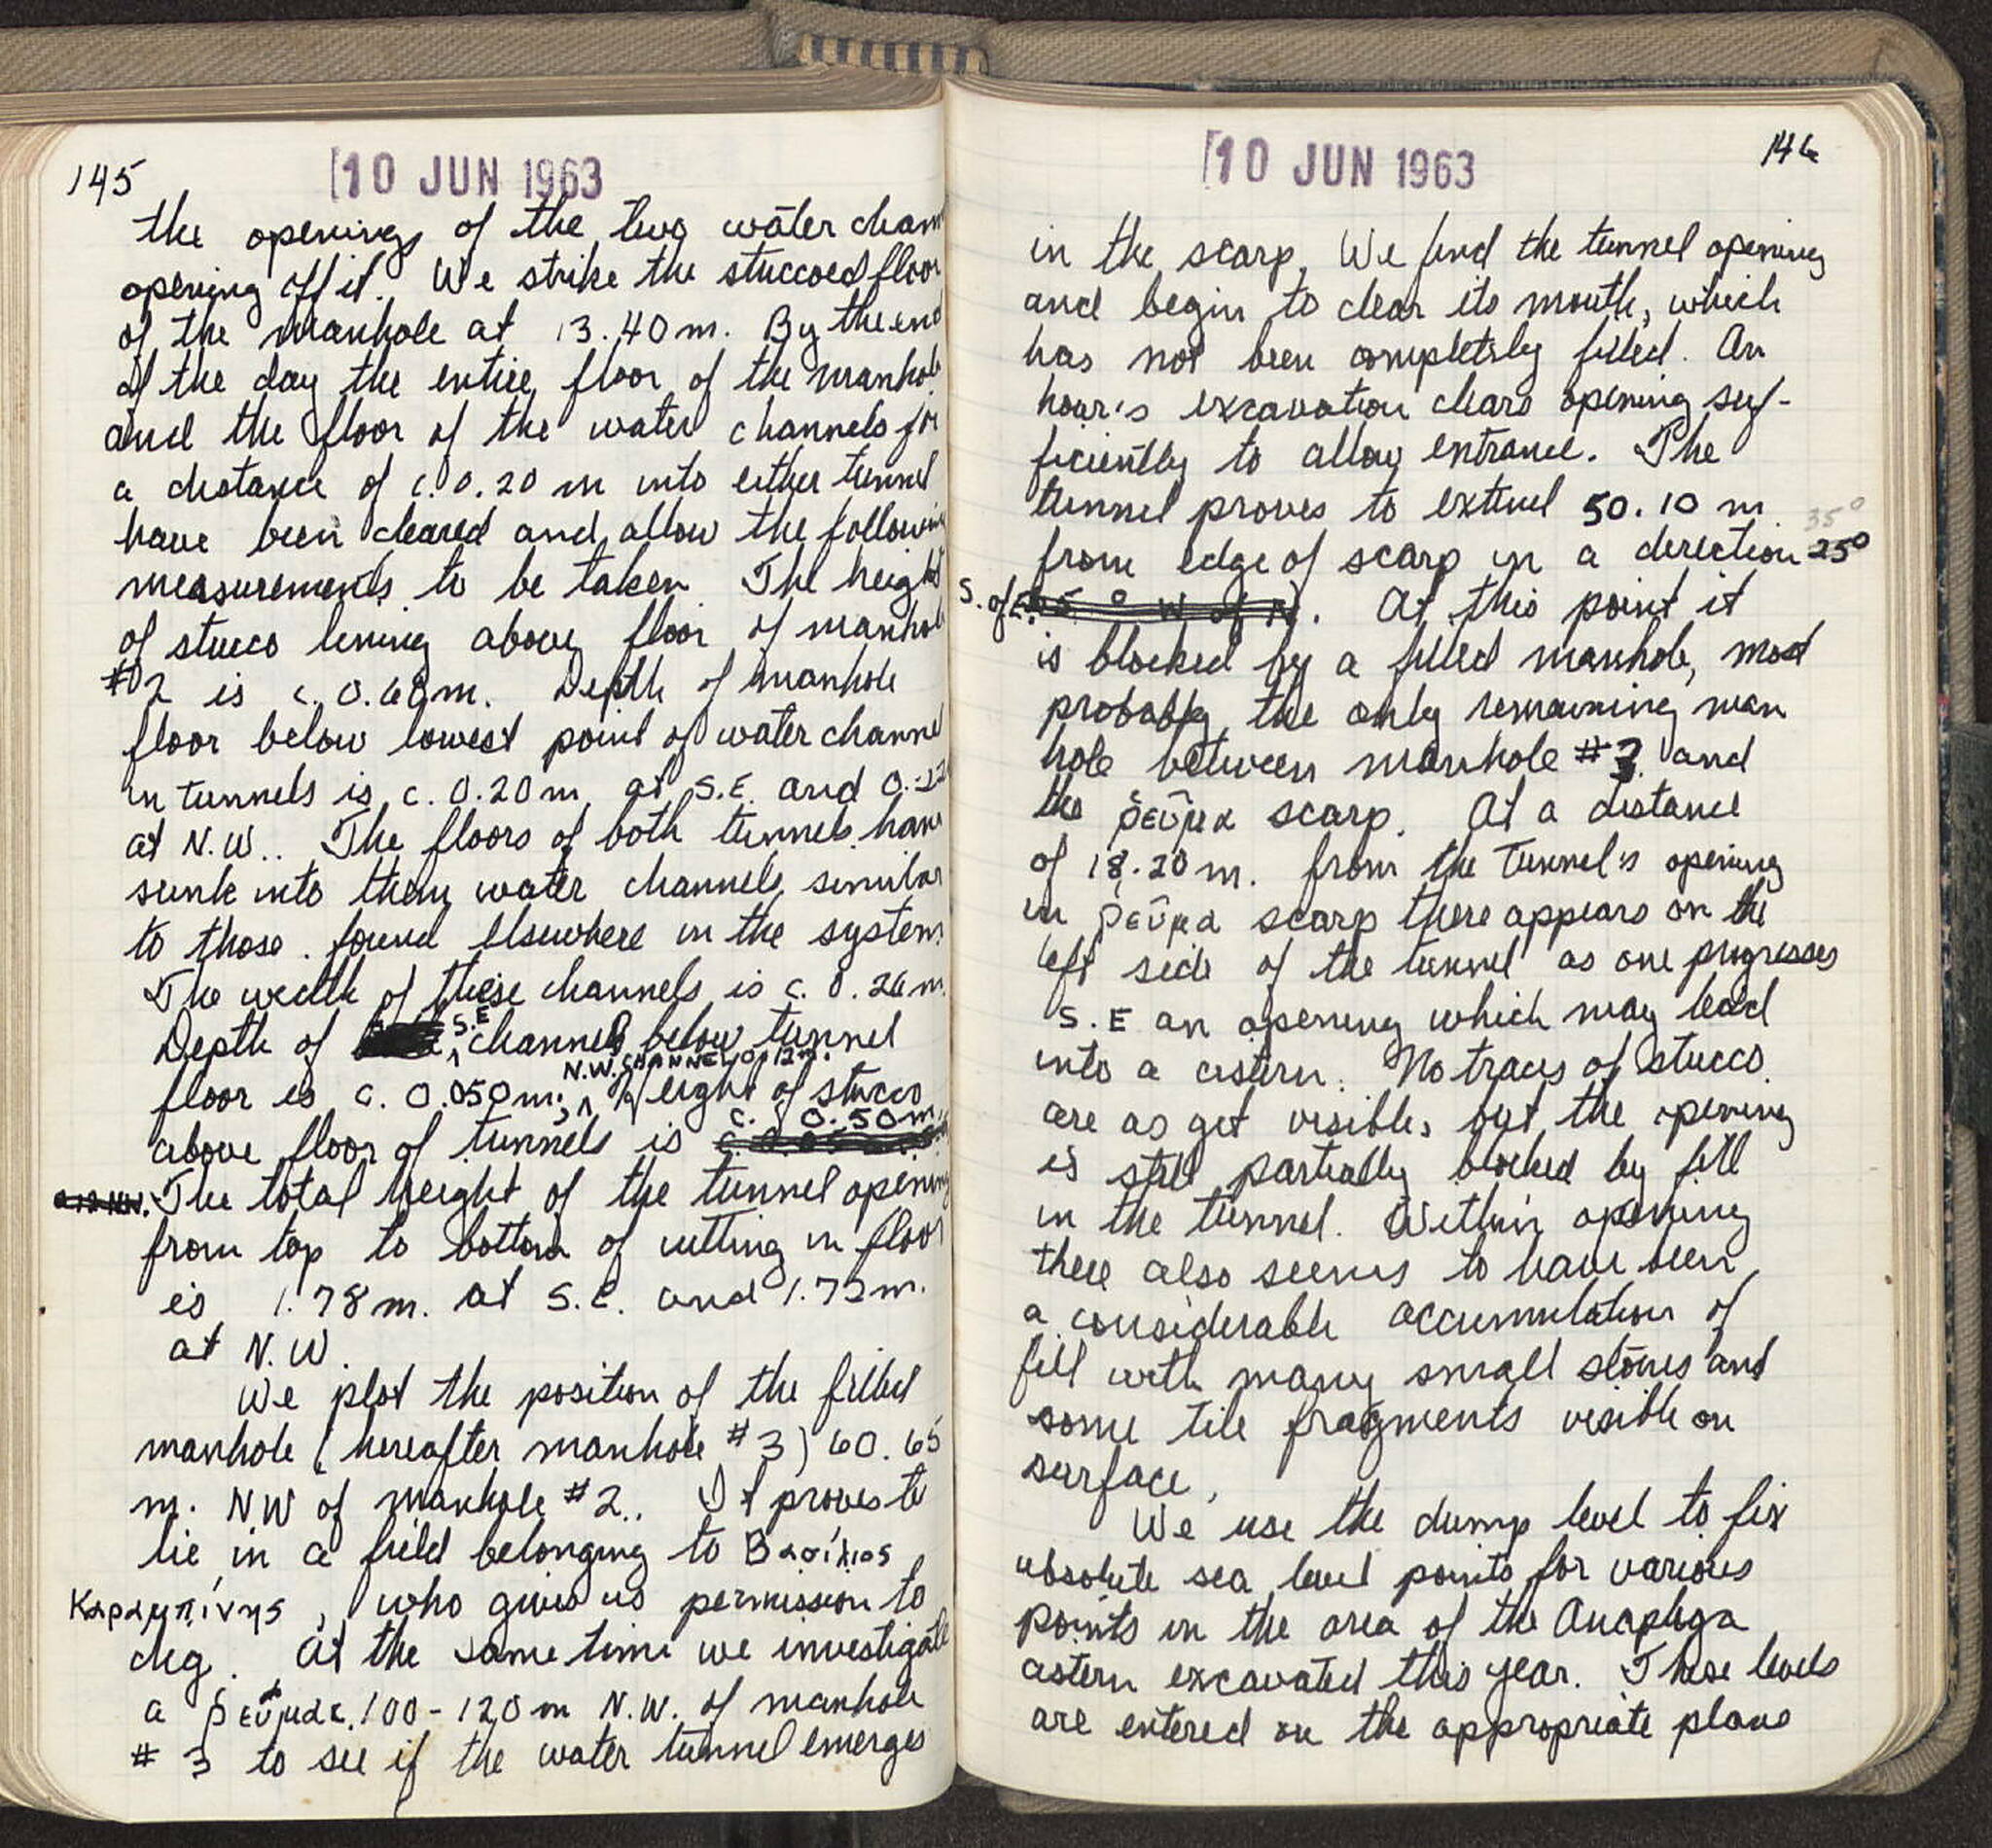 145
10 JUN 1963
the openings of the two water chan
opening off it. We strike the stuccoed floor
of the manhole at 13.40 m. By the end
of the day the entire floor of the manhole
and the floor of the water channels for
a distance of c. 0.20 m into either tunnel
have been cleared and allow the following
measurements to be taken. The height
of stucco lining above floor of manhole
#2 is c. 0.68 m. Depth of manhole
floor below lowest point of water channel
in tunnels is c. 0.20 m at S.E. and 0.
at N.W.. The floors of both tunnels have
sunk into them water channels similar
to those found elsewhere in the system.
The width of these channels is c. 0.26 m.
Depth of S.E channel below tunnel
floor is c. 0.050 m; N.W. CHANNEL, 0.12 m. Height of stucco
above floor of tunnels is c. 0.50 m.
The total height of the tunnel opening
from top to bottom of cutting in floor
is 1.78 m. at S.E. and 1.72 m.
at N.W.
We plot the position of the filled
manhole (hereafter manhole #3) 60.65
m. NW of manhole #2.. It proves to
lie in a field belonging to Βασίλιος
Καραμπίνης, who gives us permission to
dig. At the same time we investigate
a ῥεῦμα c. 100-120 m N.W. of manhole
# 3 to see if the water tunnel emerges
10 JUN 1963
146
in the scarp. We find the tunnel opening
and begin to clear its mouth, which
has not been completely filled. An
hour's excavation clears opening suf-
ficiently to allow entrance. The
tunnel proves to extend 50.10 m
35°
from edge of scarp in a direction 25°
S. of E. At this point it
is blocked by a filled manhole, most
probably the only remaining man
hole between manhole #3 and
the ῥεῦμα scarp. At a distance
of 18.20 m. from the tunnel's opening
in ῥεῦμα scarp there appears on the
left side of the tunnel as one progresses
S.E an opening which may lead
into a cistern. No traces of stucco
are as yet visible, but the opening
is still partially blocked by fill
in the tunnel. Within opening
there also seems to have been
a considerable accumulation of
fill with many small stones and
some tile fragments visible on
surface.
We use the dump level to fix
absolute sea level points for various
points in the area of the Anaploga
cistern excavated this year. These levels
are entered on the appropriate plans